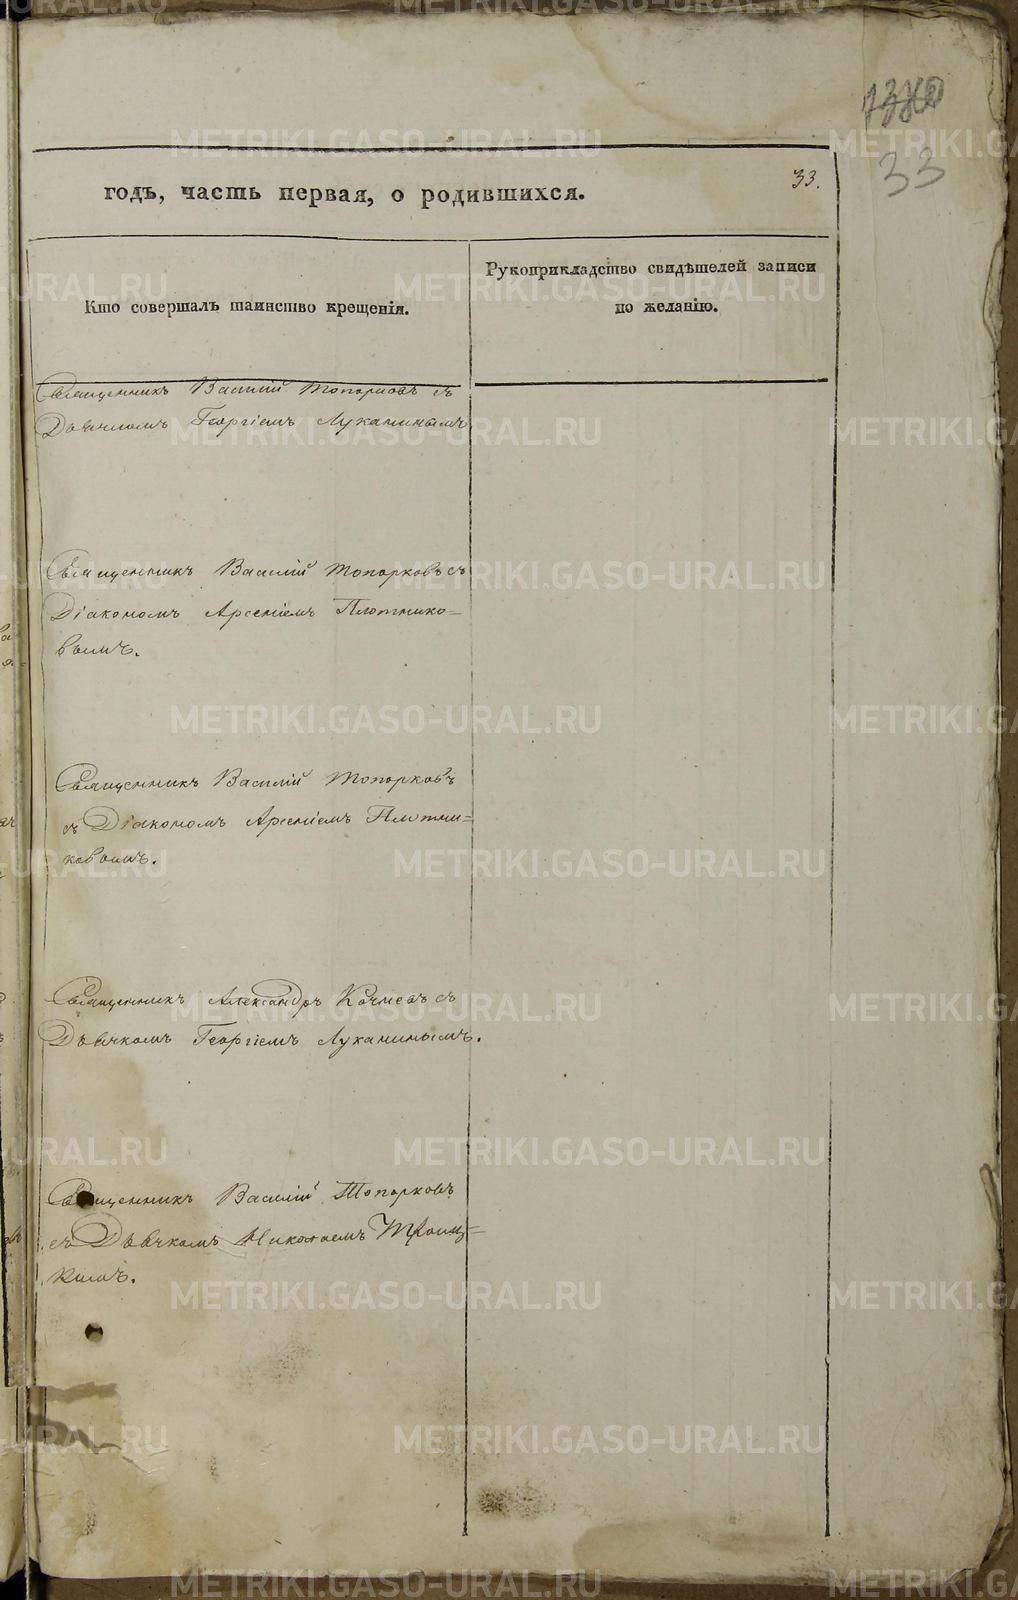 33
33.
годъ, часть первая, о родившихся.
Кто совершалъ таинство крещенія.
Рукоприкладство свидѣтелей записи
по желанію.
Священникъ Василій Топорковъ съ
Дьячкомъ Георгіемъ Луканинымъ
Священникъ Василій Топорковъ съ
Діакономъ Арсеніемъ Плотнико=
вымъ.
Священникъ Василій Топорковъ
съ Діакономъ Арсеніемъ Плотни=
ковымъ.
Священникъ Александръ съ
Дьячкомъ Георгіемъ Луканинымъ.
Священникъ Василій Топорковъ
съ Дьячкомъ Николаемъ Троиц=
кимъ.
METRIKI.GASO-URAL.RU